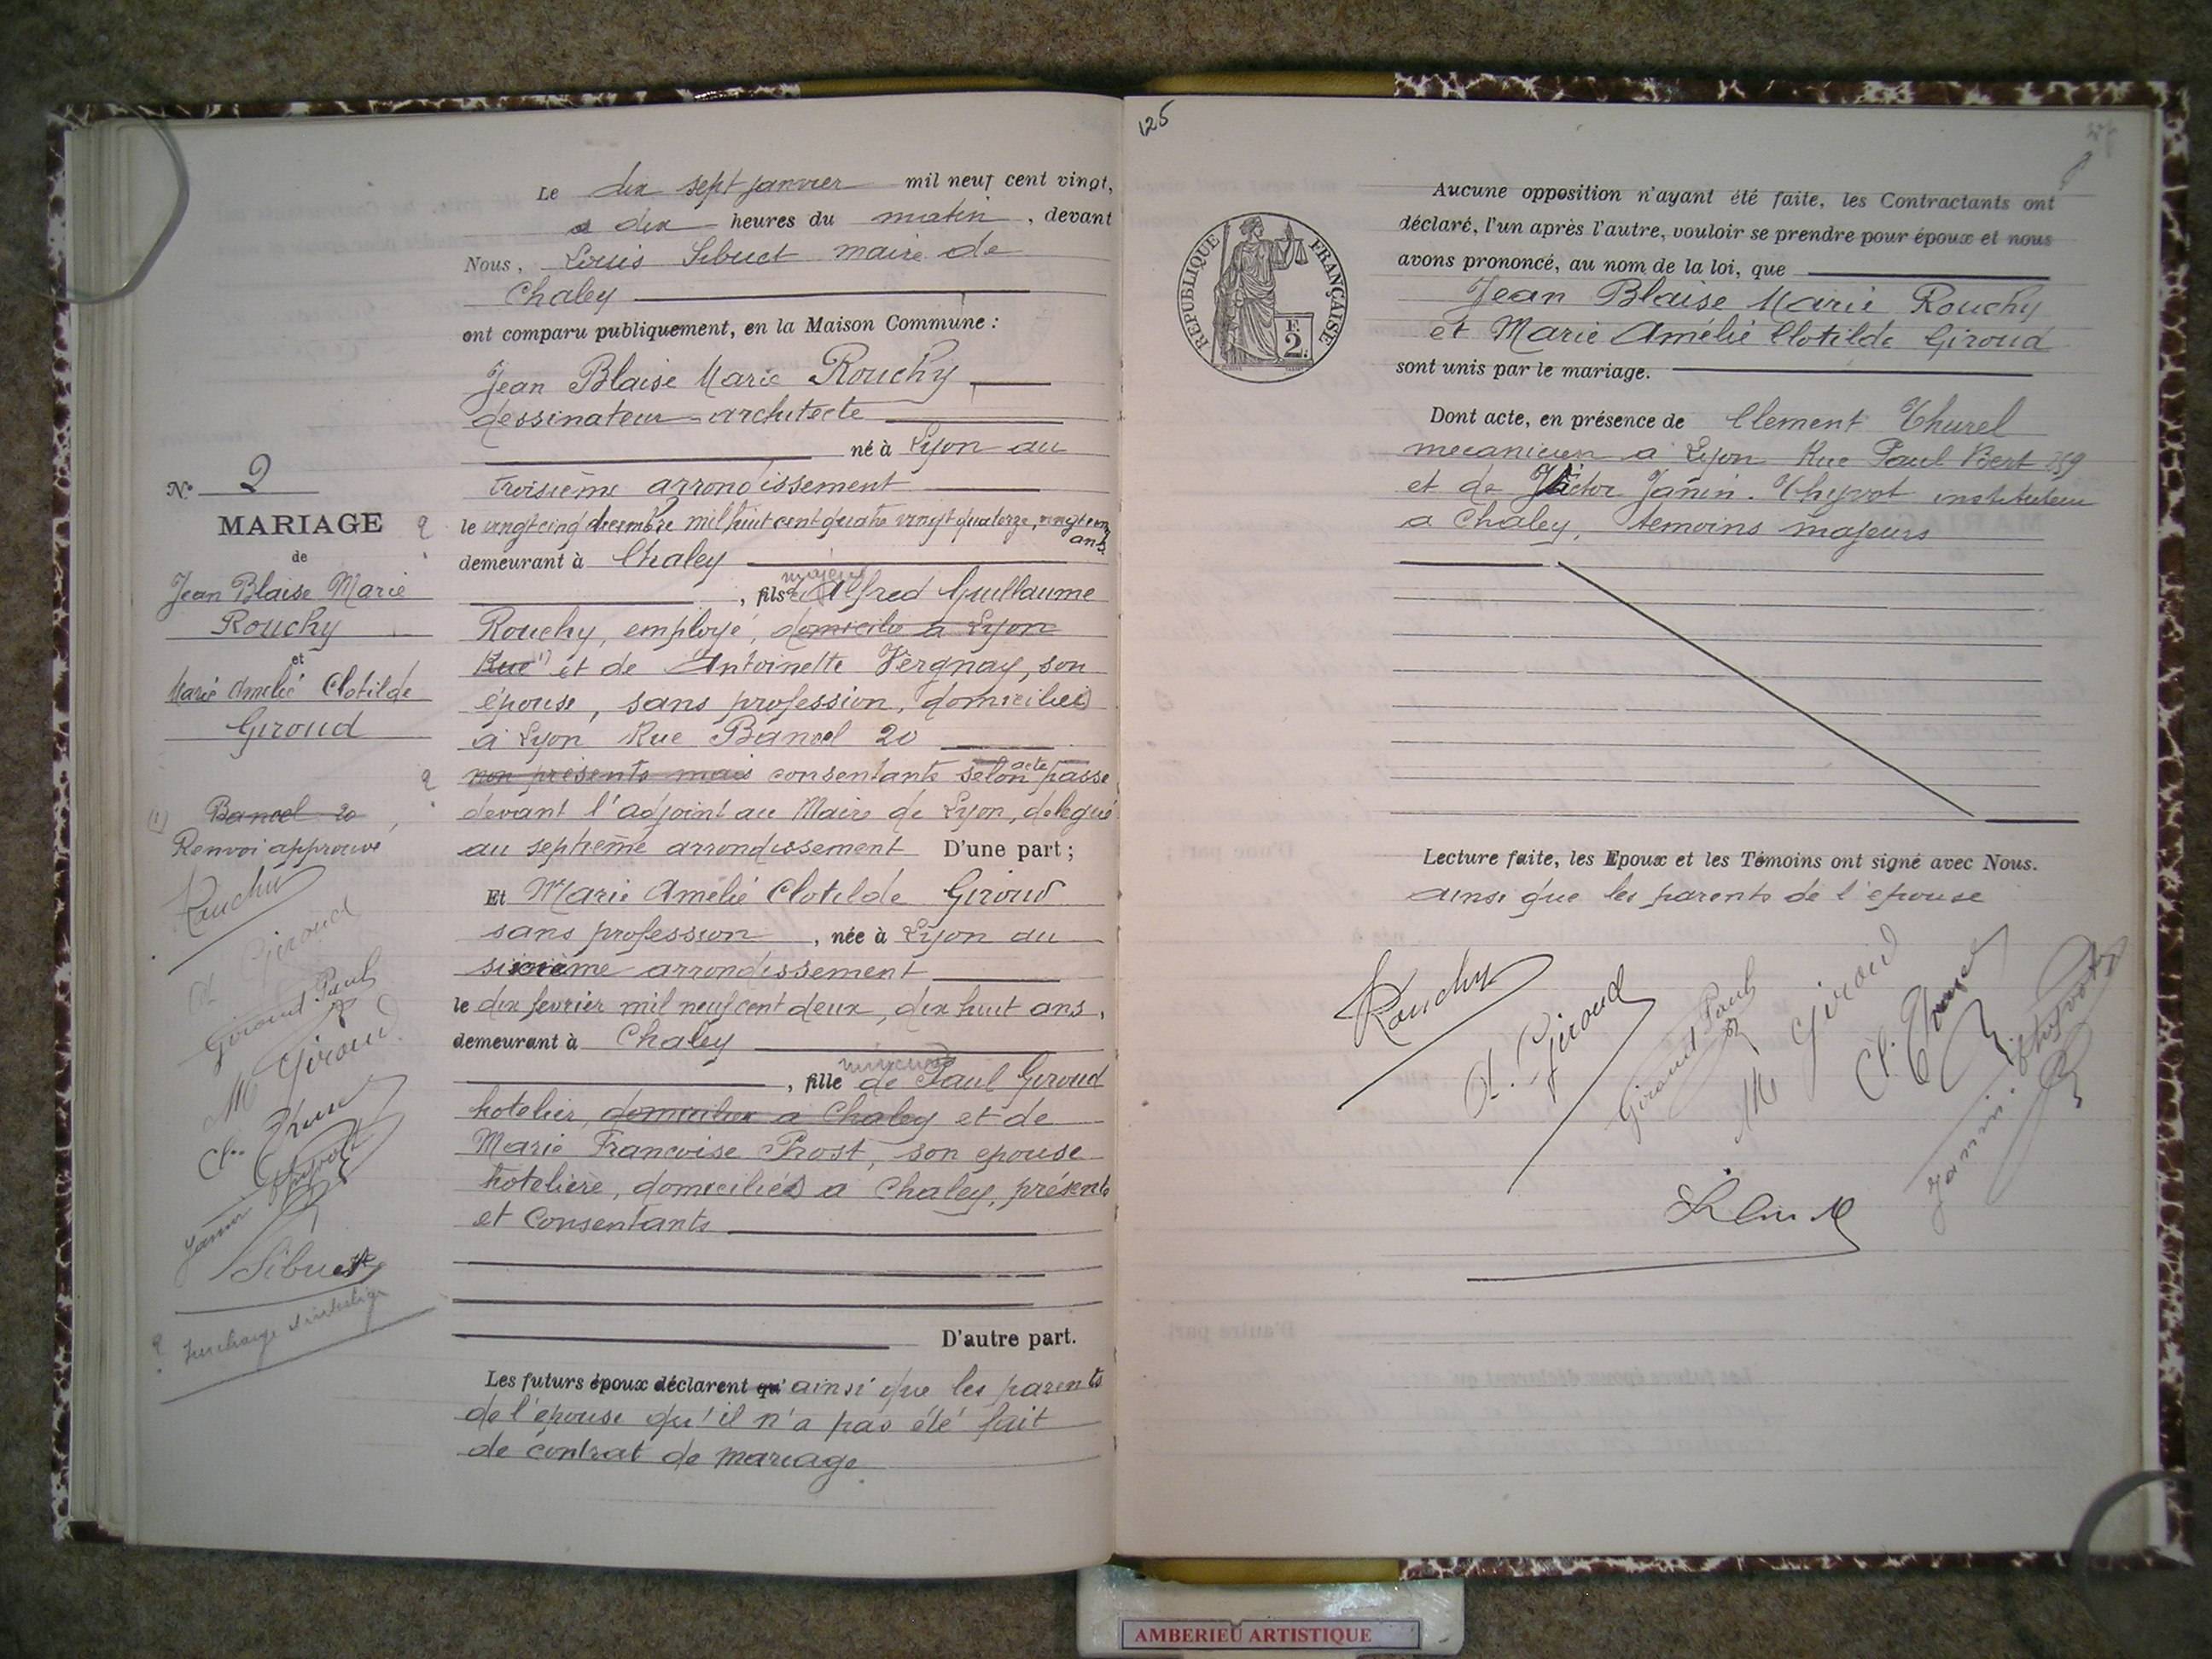 Le dix sept janvier mil neuf cent vingt,
a dix heures du matin, devant
Nous, Louis Sibuet maire de
Chaley
ont comparu publiquement, en la Maison Commune :
Jean Blaise Marie Rouchy
dessinateur-architecte
né à Lyon au
troisième arrondissement
le vingt cinq decembre mil huit cent quatre vingt quatorze, vingt cinq
ans.
demeurant à Chaley
majeur
, fils de Alfred Guillaume
Rouchy, employé, domicilié à Lyon
Rue (1) et de Antoinette Vergnay, son
épouse, sans profession, domiciliés
à Lyon Rue Bancel 20
non présents mais consentants selon acte passé
devant l'adjoint au Maire de Lyon, delegué
au septième arrondissement D'une part ;
Et Marie Amélie Clotilde Giroud
sans profession, née à Lyon au
sixième arrondissement
le dix fevrier mil neuf cent deux, dix huit ans,
demeurant à Chaley
mineure
, fille de Paul Giroud
hotelier, domicilié a Chaley et de
Marie Francoise Prost, son epouse
hotelière, domiciliés a Chaley, présents
et consentants
D'autre part.
Les futurs époux déclarent qu' ainsi que les parents
de l'épouse qu'il n'a pas été fait
de contrat de mariage
N° 2
MARIAGE
de
Jean Blaise Marie
Rouchy
et
Marie Amelie Clotilde
Giroud
(1) Bancel 20
Renvoi approuvé
Rouchy
A Giroud
Giroud Paul
M Giroud
Cl. Thurel
Janin Thyvot
Sibuet
125
REPUBLIQUE FRANÇAISE
F.
2.
Aucune opposition n'ayant été faite, les Contractants ont
déclaré, l'un après l'autre, vouloir se prendre pour époux et nous
avons prononcé, au nom de la loi, que
Jean Blaise Marie Rouchy
et Marie Amélie Clotilde Giroud
sont unis par le mariage.
Dont acte, en présence de Clement Thurel
mecanicien a Lyon Rue Paul Bert 259
et de Victor Janin-Thyvot instituteur
a Chaley, temoins majeurs
Lecture faite, les Epoux et les Témoins ont signé avec Nous.
ainsi que les parents de l'epouse
Rouchy
A. Giroud
Giroud Paul
M Giroud
Cl. Thurel
Janin-Thyvot
Sibuet
AMBERIEU ARTISTIQUE